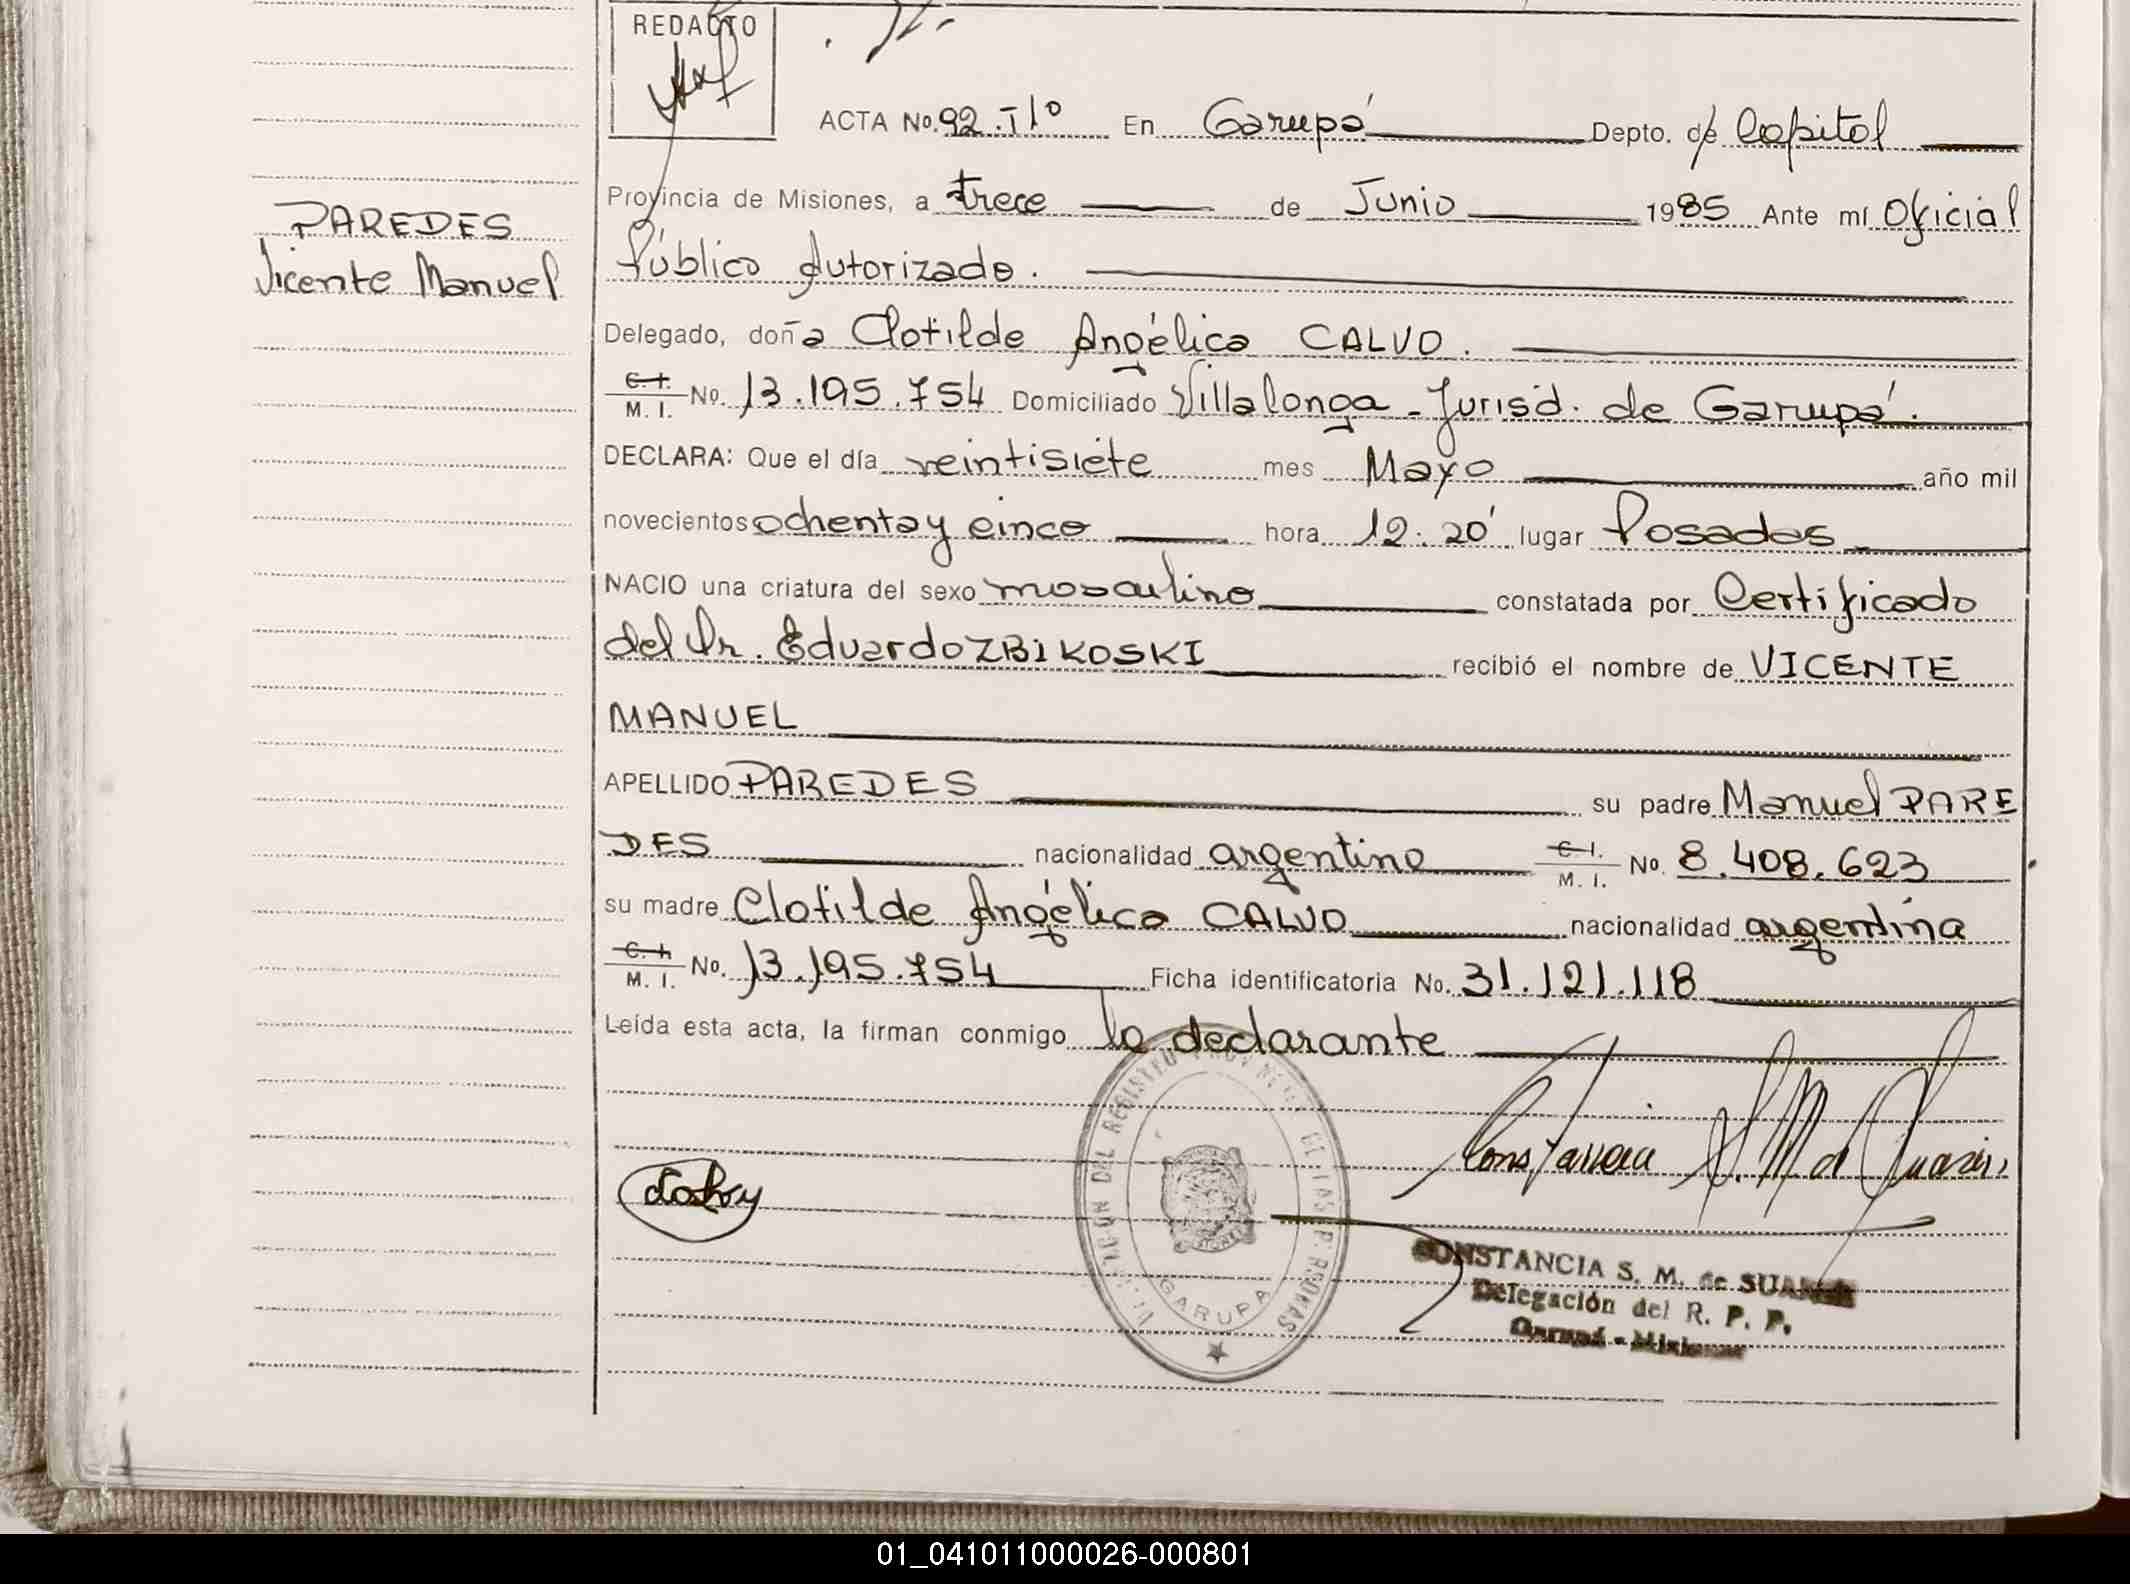 REDACTO
ACTA No. 92. Tlº En Garupá Depto. de Capital
Provincia de Misiones, a trece de Junio 1985 Ante mí Oficial
PAREDES
Público Autorizado.
Vicente Manuel
Delegado, doña Clotilde Angélica CALVO.
C. I. M. I. No. 13.195.754 Domiciliado Villalonga - Jurisd. de Garupá.
DECLARA: Que el día veintisiete mes Mayo año mil
novecientos ochenta y cinco hora 12:20' lugar Posadas
NACIO una criatura del sexo masculino constatada por Certificado
del Dr. Eduardo ZBIKOSKI recibió el nombre de VICENTE
MANUEL
APELLIDO PAREDES su padre Manuel PARE
DES nacionalidad argentino C. I. M. I. No. 8.408.623
su madre Clotilde Angélica CALVO nacionalidad argentina
C. I. M. I. No. 13.195.754 Ficha identificatoria No. 31.121.118
Leída esta acta, la firman conmigo la declarante
DEL REGISTRO PROVINCIAL DE LAS PERSONAS
GARUPA
Constancia S. M. de Suarez
CONSTANCIA S. M. de SUAREZ
Delegación del R. P. P.
Garupá - Misiones
01_041011000026-000801